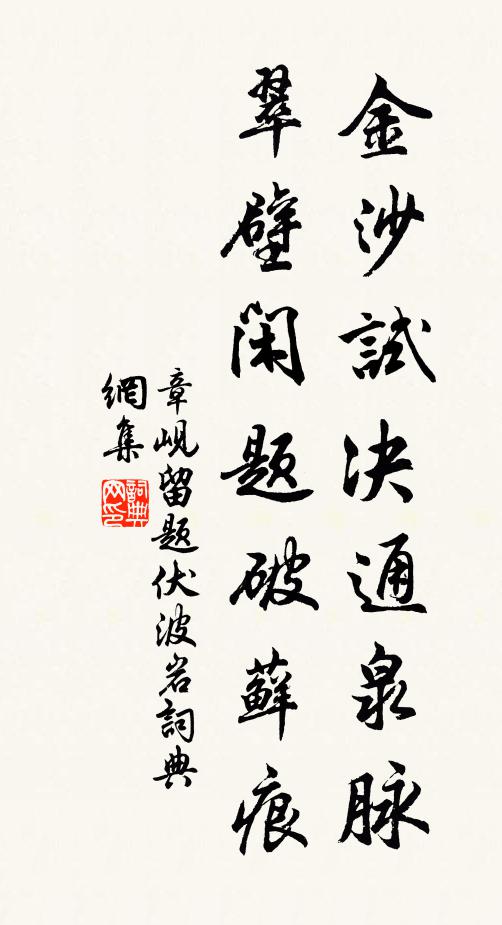 金沙試決通泉脉
翠壁閑题破蘚痕
章岘留题伏波岩詞典
網集
詞典
网印